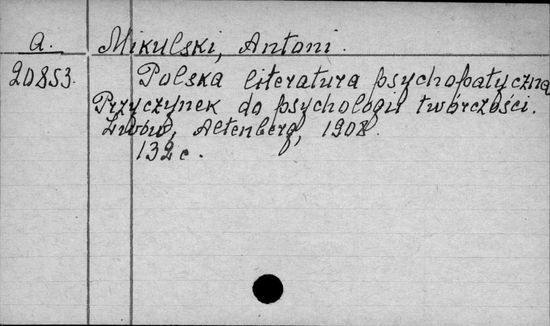 a. Mikulski, Antoni.
20853. Polska literatura psychopatyczna
Przyczynek do psychologii twórczości.
Lwów, Altenberg, 1908.
132 c.